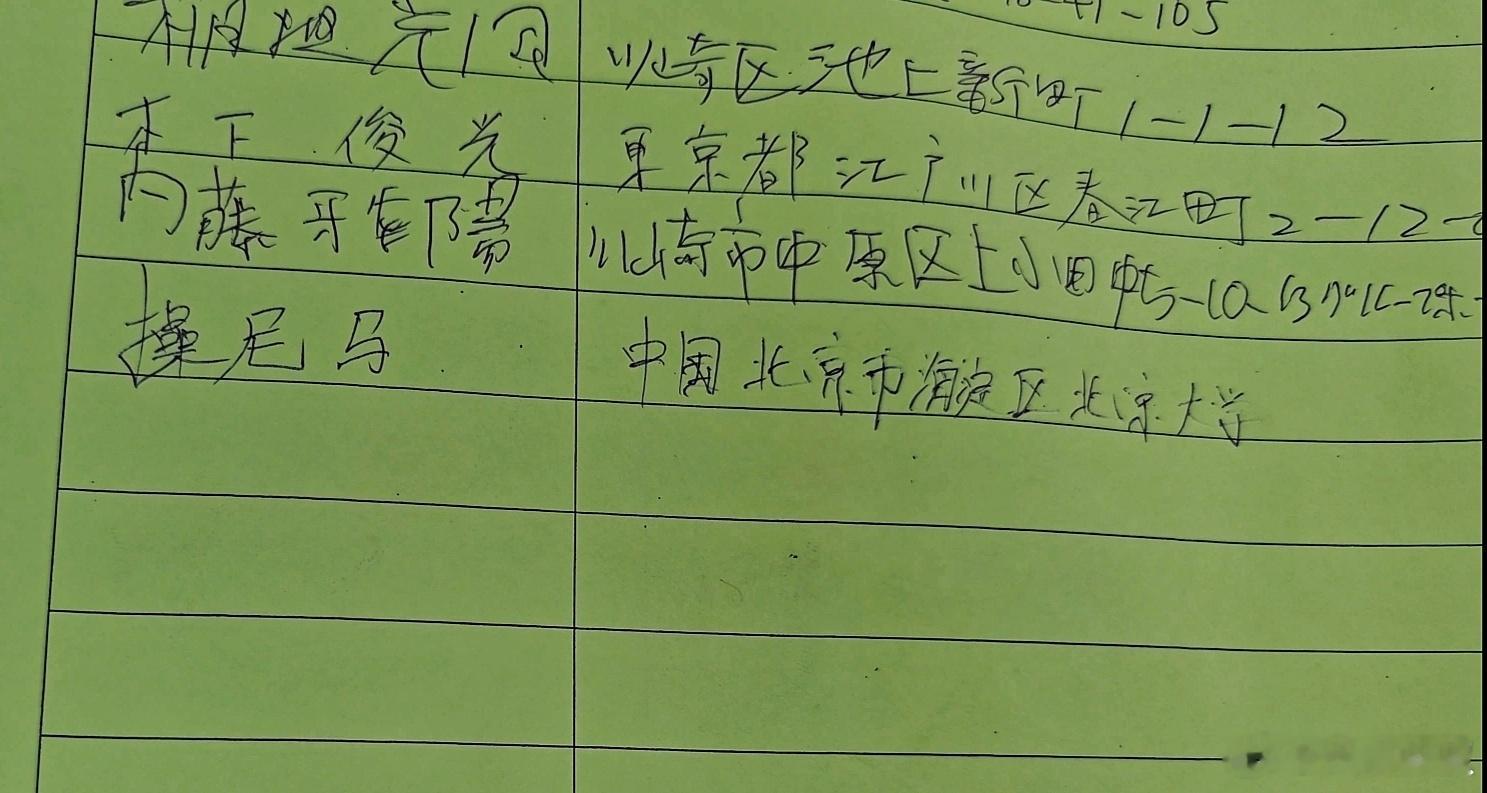 -105
川崎区池上新町1-1-12
木下 俊光 東京都江戸川区春江町2-12-
内藤 雅陽 川崎市中原区上小田中5-10
操尼马 中国北京市海淀区北京大学